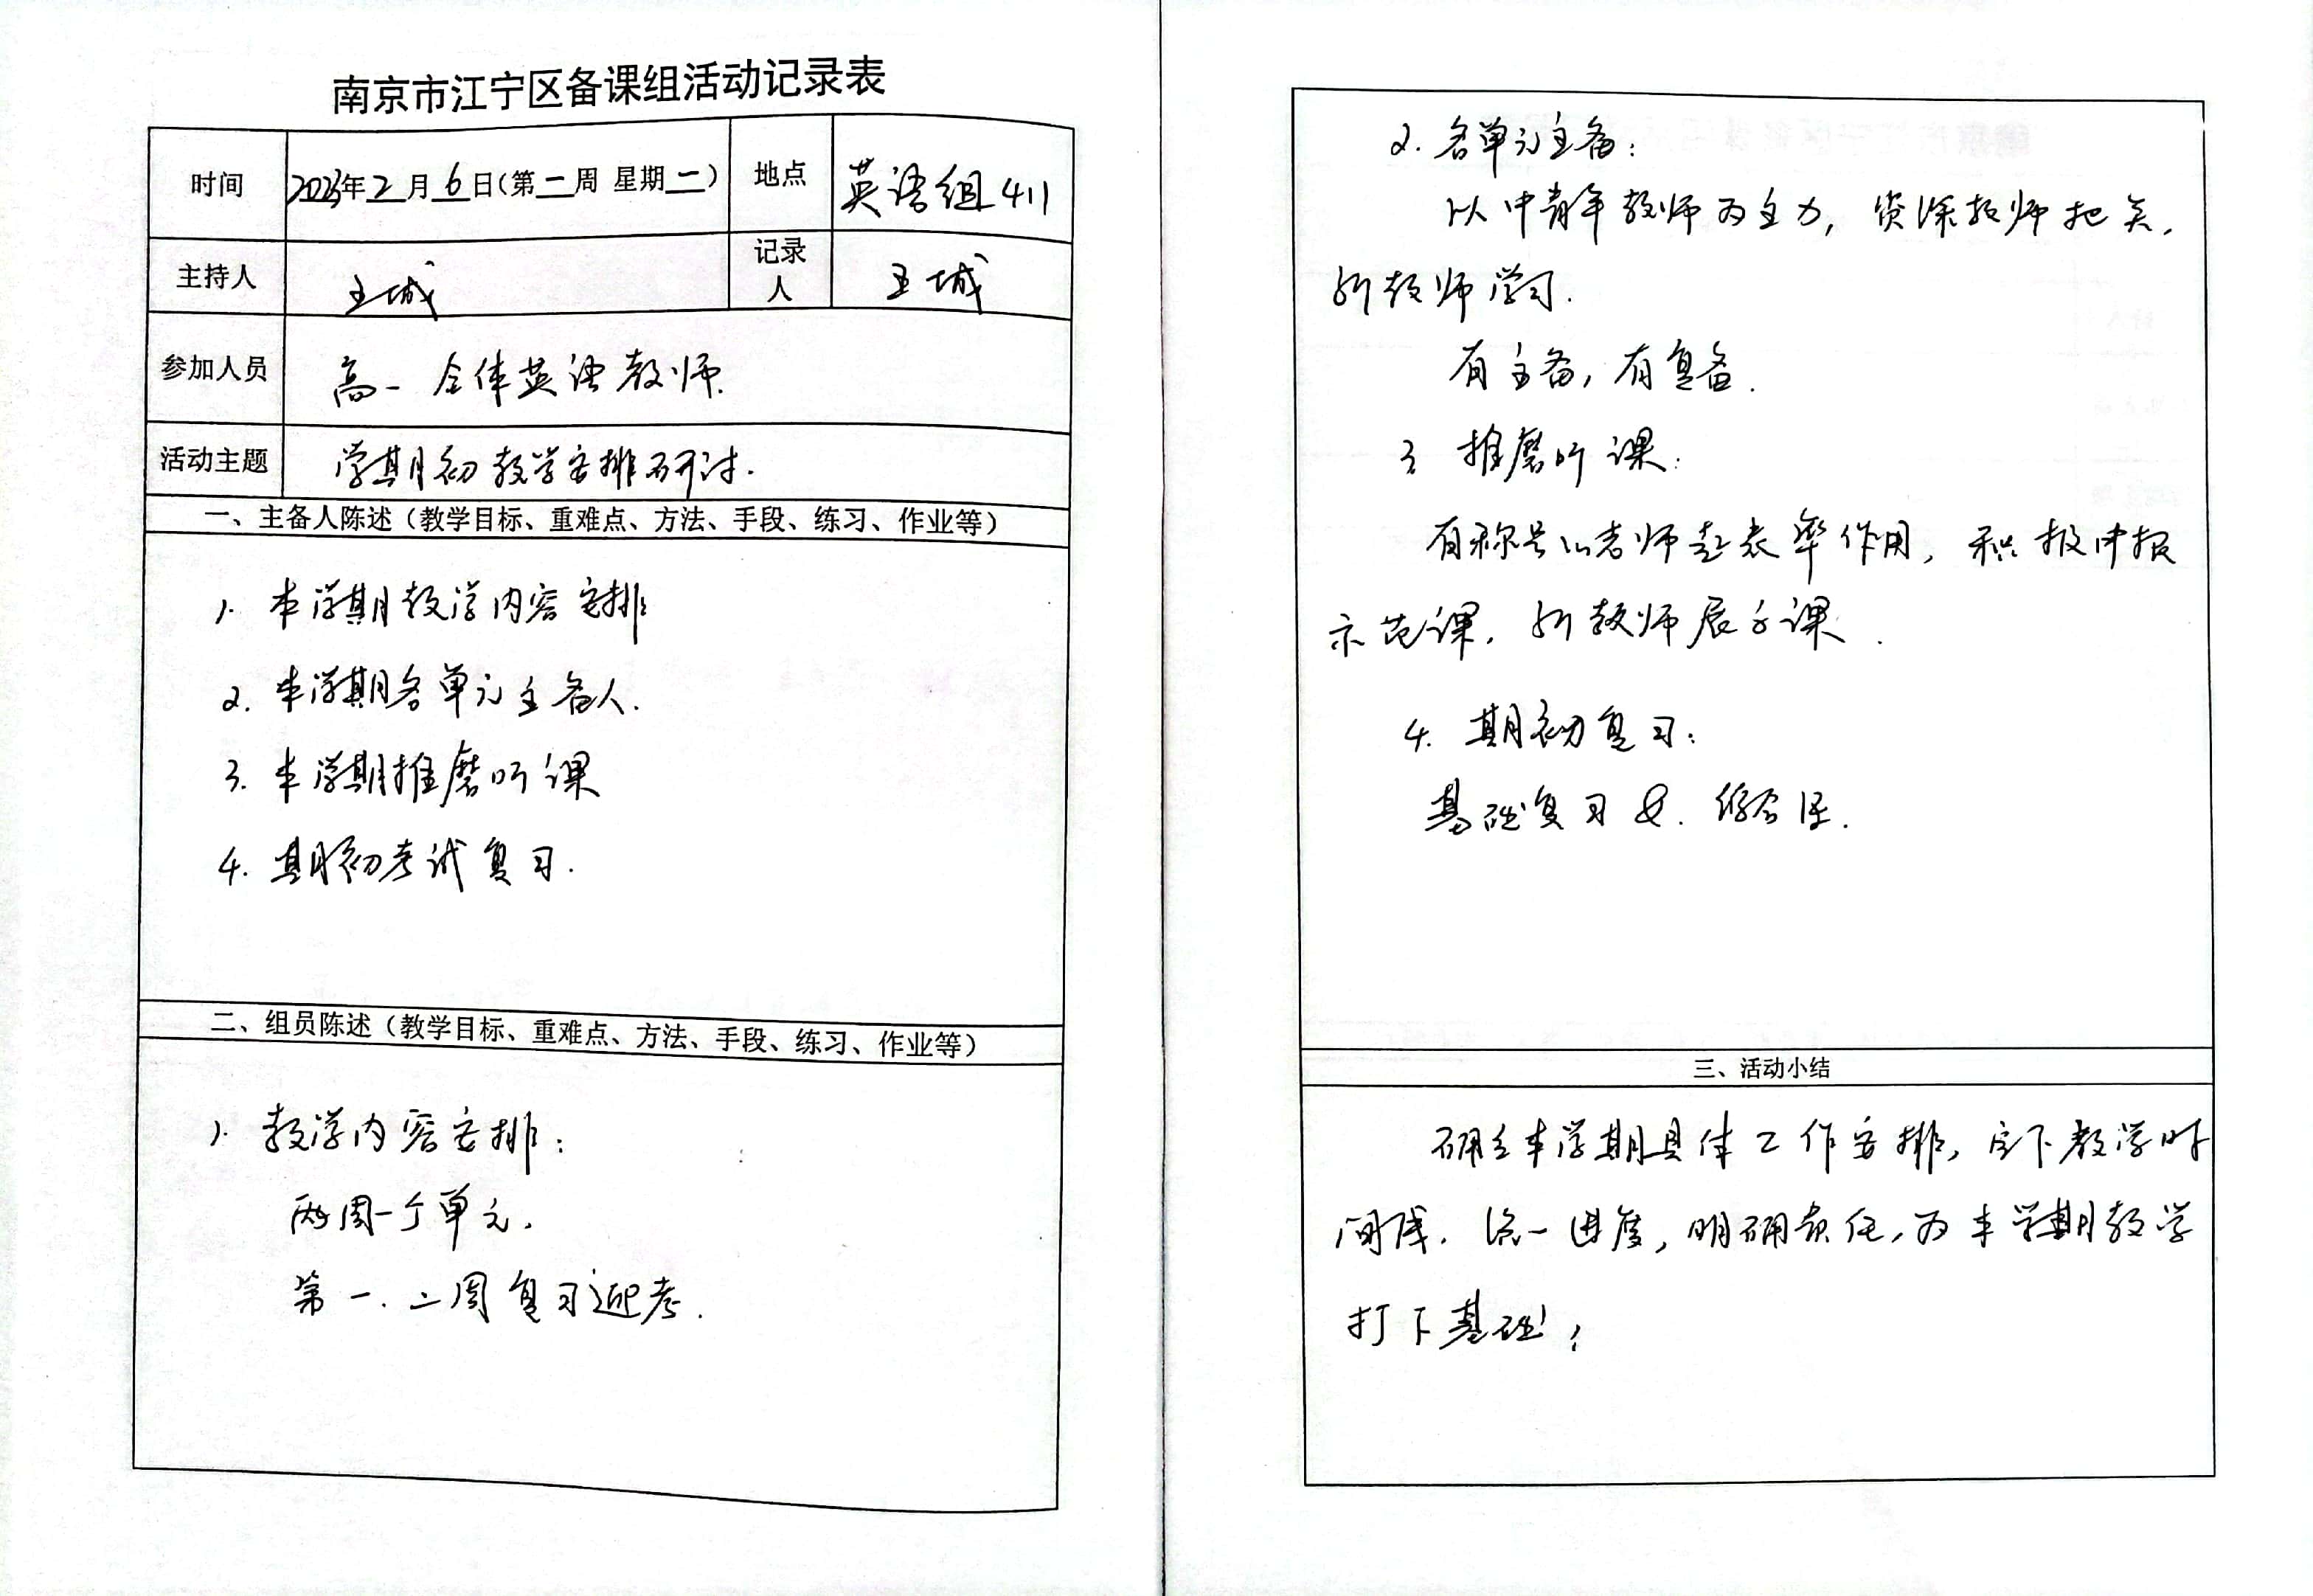 南京市江宁区备课组活动记录表
时间 2023年2月6日(第二周 星期二) 地点 英语组411
主持人 王城 记录人 王城
参加人员 高一全体英语教师.
活动主题 学期初教学安排研讨.
一、主备人陈述（教学目标、重难点、方法、手段、练习、作业等）
1. 本学期教学内容安排
2. 本学期各单元主备人.
3. 本学期推磨听课
4. 期初考试复习.
二、组员陈述（教学目标、重难点、方法、手段、练习、作业等）
1. 教学内容安排:
两周一个单元.
第一.二周复习迎考.
2. 各单元主备:
以中青年教师为主力, 资深教师把关.
新教师学习.
有主备, 有复备.
3 推磨听课:
有称号的老师起表率作用, 积极申报
示范课, 新教师展示课.
4. 期初复习:
基础复习
三、活动小结
确定本学期具体工作安排, 定下教学时
间线. 统一进度, 明确责任, 为本学期教学
打下基础;